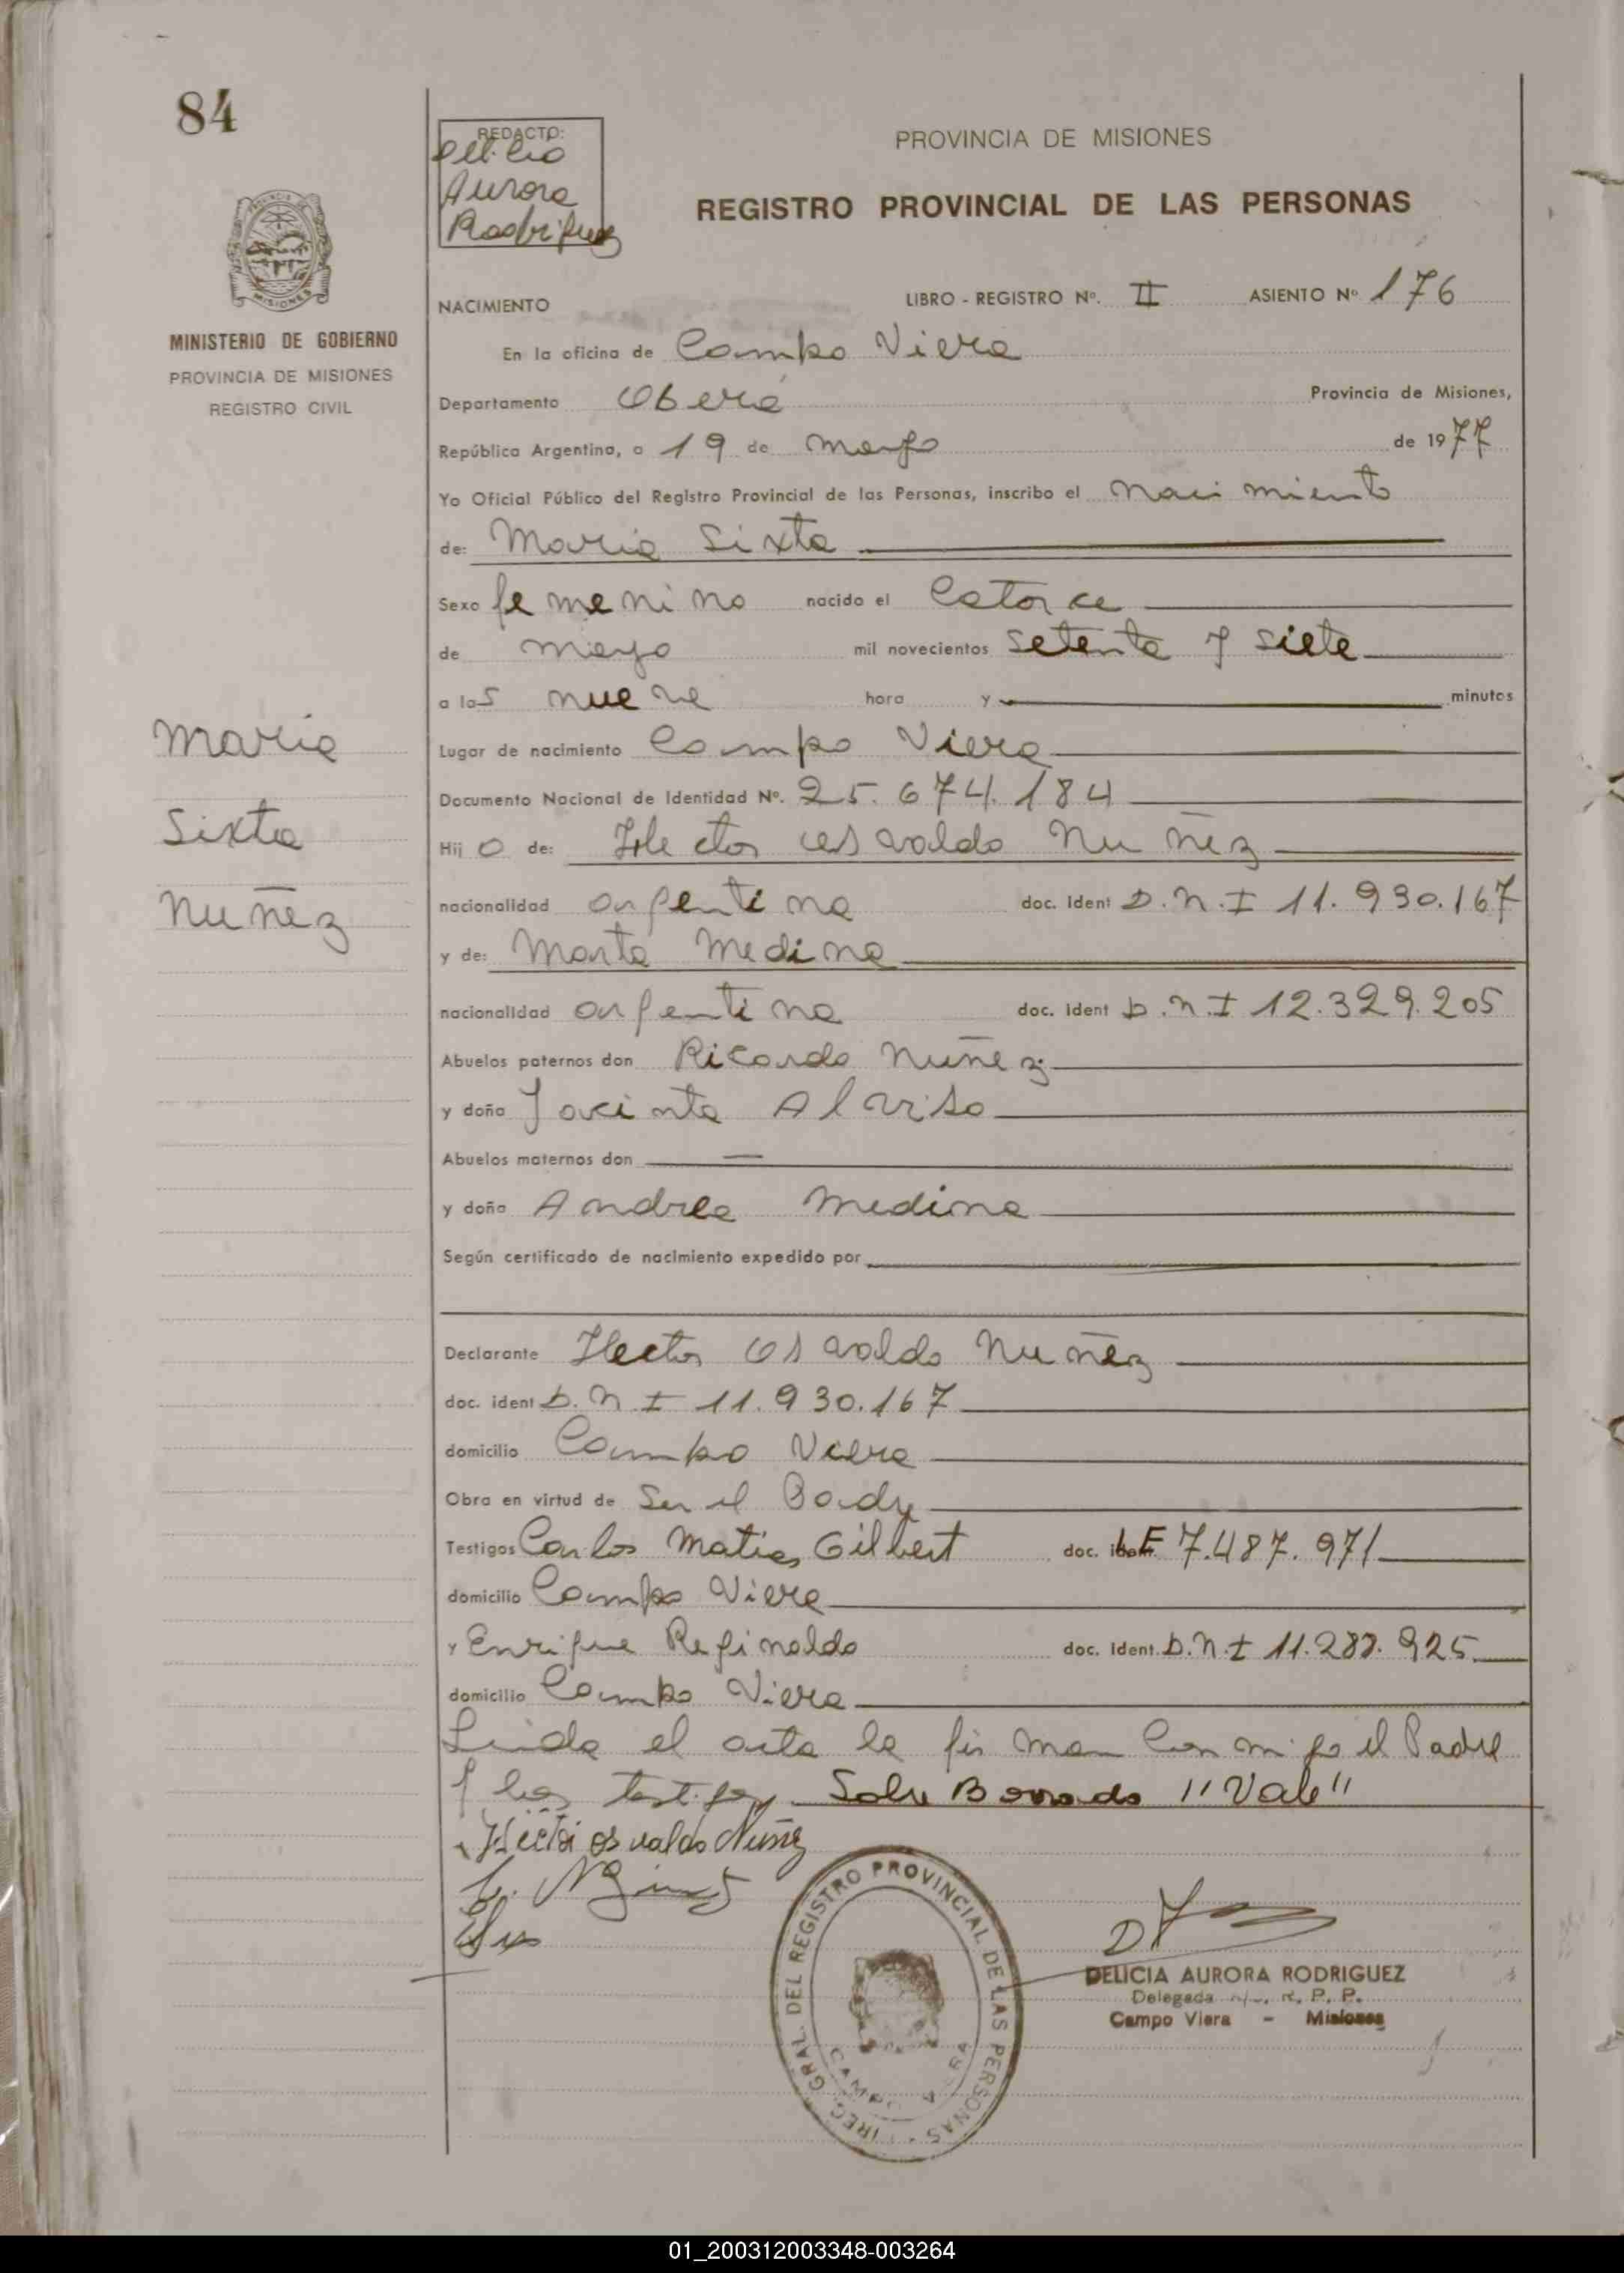 84
REDACTO:
Delicia
Aurora
Rodriguez
PROVINCIA DE MISIONES
REGISTRO PROVINCIAL DE LAS PERSONAS
MISIONES
MINISTERIO DE GOBIERNO
PROVINCIA DE MISIONES
REGISTRO CIVIL
NACIMIENTO LIBRO - REGISTRO Nº. II ASIENTO Nº 176
En la oficina de Campo Viera
Departamento Oberá Provincia de Misiones,
República Argentina, a 19 de mayo de 1977
Yo Oficial Público del Registro Provincial de las Personas, inscribo el nacimiento
de: Maria Sixta
Sexo femenino nacido el Catorce
de mayo mil novecientos setenta y siete
a las nueve hora y minutos
Lugar de nacimiento Campo Viera
Documento Nacional de Identidad Nº. 25.674.184
Hij o de: Hector Osvaldo Nuñez
nacionalidad argentina doc. Ident D.N.I 11.930.167
y de: Marta Medina
nacionalidad argentina doc. Ident D.N.I 12.329.205
Abuelos paternos don Ricardo Nuñez
y doña Jacinta Alviso
Abuelos maternos don —
y doña Andrea Medina
Según certificado de nacimiento expedido por
Maria
Sixta
Nuñez
Declarante Hector Osvaldo Nuñez
doc. ident D.N.I 11.930.167
domicilio Campo Viera
Obra en virtud de Ser el Padre
Testigos Carlos Matias Gilbert doc. LE 7.487.971
domicilio Campo Viera
y Enrique Reginaldo doc. Ident. D.N.I 11.287.925
domicilio Campo Viera
Leida el acta la firman conmigo el Padre
y los testigos. Sobre Borrado "Vale"
Hector osvaldo Nuñez
DELICIA AURORA RODRIGUEZ
Delegada R. P. P.
Campo Viera - Misiones
GRAL. DEL REGISTRO PROVINCIAL DE LAS PERSONAS
CAMPO
01_200312003348-003264